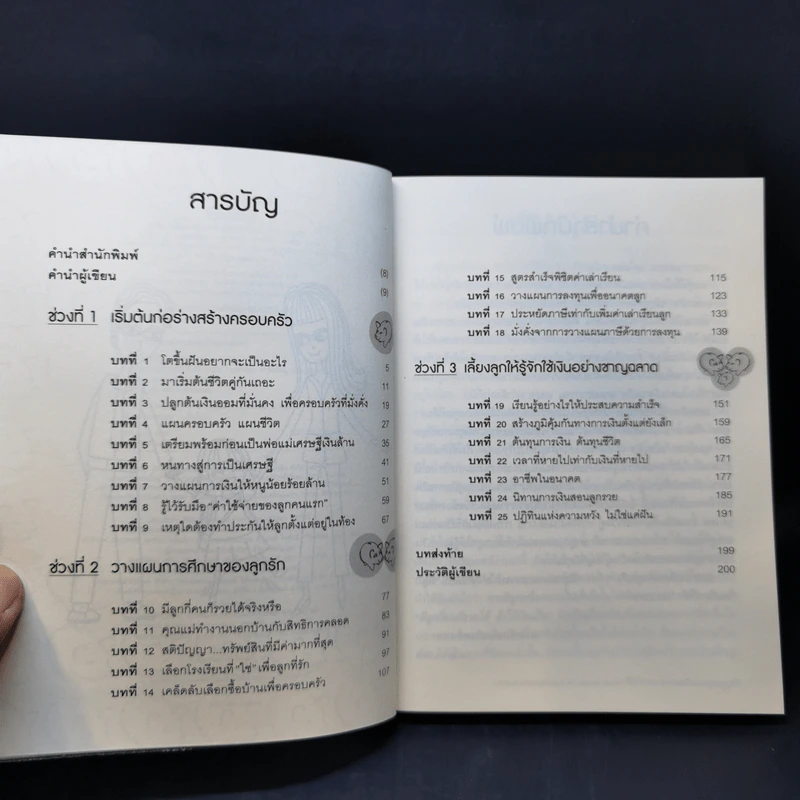 สารบัญ
คำนำสำนักพิมพ์ (8)
คำนำผู้เขียน (9)
ช่วงที่ 1 เริ่มต้นก่อร่างสร้างครอบครัว
บทที่ 1 โตขึ้นฝันอยากจะเป็นอะไร 5
บทที่ 2 มาเริ่มต้นชีวิตคู่กันเถอะ 11
บทที่ 3 ปลูกต้นเงินออมที่มั่นคง เพื่อครอบครัวที่มั่งคั่ง 19
บทที่ 4 แผนครอบครัว แผนชีวิต 27
บทที่ 5 เตรียมพร้อมก่อนเป็นพ่อแม่เศรษฐีเงินล้าน 35
บทที่ 6 หนทางสู่การเป็นเศรษฐี 41
บทที่ 7 วางแผนการเงินให้หนูน้อยร้อยล้าน 51
บทที่ 8 รู้ไว้รับมือ "ค่าใช้จ่ายของลูกคนแรก" 59
บทที่ 9 เหตุใดต้องทำประกันให้ลูกตั้งแต่อยู่ในท้อง 67
ช่วงที่ 2 วางแผนการศึกษาของลูกรัก
บทที่ 10 มีลูกกี่คนก็รวยได้จริงหรือ 77
บทที่ 11 คุณแม่ทำงานนอกบ้านกับสิทธิการคลอด 83
บทที่ 12 สติปัญญา...ทรัพย์สินที่มีค่ามากที่สุด 91
บทที่ 13 เลือกโรงเรียนที่ "ใช่" เพื่อลูกที่รัก 97
บทที่ 14 เคล็ดลับเลือกซื้อบ้านเพื่อครอบครัว 107
บทที่ 15 สูตรสำเร็จพิชิตค่าเล่าเรียน 115
บทที่ 16 วางแผนการลงทุนเพื่ออนาคตลูก 123
บทที่ 17 ประหยัดภาษีเท่ากับเพิ่มค่าเล่าเรียนลูก 133
บทที่ 18 มั่งคั่งจากการวางแผนภาษีด้วยการลงทุน 139
ช่วงที่ 3 เลี้ยงลูกให้รู้จักใช้เงินอย่างชาญฉลาด
บทที่ 19 เรียนรู้อย่างไรให้ประสบความสำเร็จ 151
บทที่ 20 สร้างภูมิคุ้มกันทางการเงินตั้งแต่ยังเล็ก 159
บทที่ 21 ต้นทุนการเงิน ต้นทุนชีวิต 165
บทที่ 22 เวลาที่หายไปเท่ากับเงินที่หายไป 171
บทที่ 23 อาชีพในอนาคต 177
บทที่ 24 นิทานการเงินสอนลูกรวย 185
บทที่ 25 ปฏิทินแห่งความหวัง ไม่ใช่แค่ฝัน 191
บทส่งท้าย 199
ประวัติผู้เขียน 200